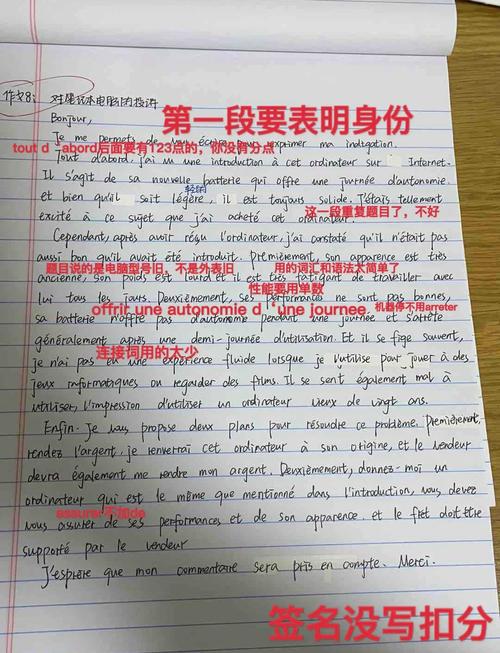 作文8: 对笔记本电脑的投诉
Bonjour,
第一段要表明身份
Je me permets de vous écrire pour exprimer ma indignation.
tout d 'abord后面要有123点的,你没有分点
Tout d'abord, j'ai vu une introduction à cet ordinateur sur Internet.
Il s'agit de sa nouvelle batterie qui offre une journée d'autonomie.
轻的
et bien qu'il soit légère, il est toujours solide. J'étais tellement
excité à ce sujet que j'ai acheté cet ordinateur.
这一段重复题目了,不好
Cependant, après avoir reçu l'ordinateur, j'ai constaté qu'il n'était pas
aussi bon qu'il avait été introduit. Premièrement, son apparence est très
题目说的是电脑型号旧,不是外表旧
用的词汇和语法太简单了
ancienne, son poids est lourd et il est très fatigant de travailler avec
性能要用单数
lui tous les jours. Deuxièmement, ses performances ne sont pas bonnes,
offrir une autonomie d‘une journee.
机器停不用arreter
sa batterie n'offre pas d'autonomie pendant une journée et s'arrête
généralement après une demi-journée d'utilisation. Et il se fige souvent,
连接词用的太少
je n'ai pas eu une expérience fluide lorsque je l'utilise pour jouer à des
jeux informatiques ou regarder des films. Il se sent également mal à
utiliser, l'impression d'utiliser un ordinateur vieux de vingt ans.
Enfin. Je vous propose deux plans pour résoudre ce problème. Premièrement,
rendez l'argent, je renverrai cet ordinateur à son origine, et le vendeur
devra également me rendre mon argent. Deuxièmement, donnez-moi un
ordinateur qui est le même que mentionné dans l'introduction, vous devez
assurer不加de
vous assurer de ses performances et de son apparence. et le fret doit être
supporté par le vendeur
J'espère que mon commentaire sera pris en compte. Merci.
签名没写扣分